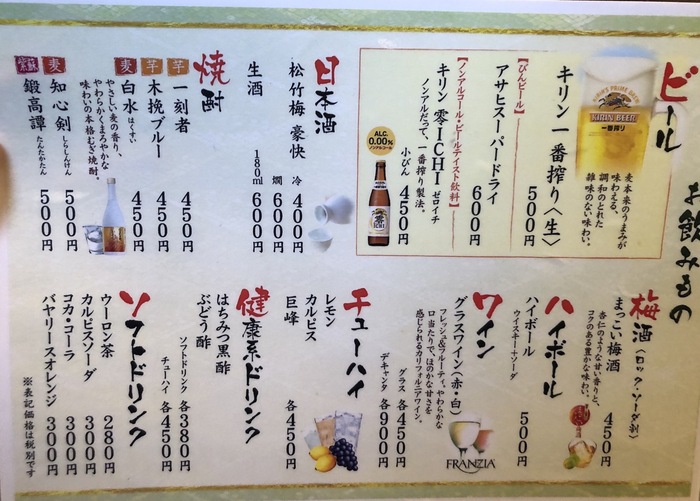 お飲みもの
ビール
KIRIN BEER
一番搾り
麦本来のうまみが
味わえる、
調和のとれた
雑味のない味わい。
キリン一番搾り〈生〉
500円
【びんビール】
アサヒスーパードライ
600円
【ノンアルコール・ビールテイスト飲料】
キリン 零ICHI ゼロイチ
ノンアルだって、一番搾り製法。
小びん 450円
ALC.
0.00%
ノンアルコール
日本酒
松竹梅 豪快 冷 400円
燗 600円
生酒 180ml 600円
焼酎
芋 一刻者 450円
芋 木挽ブルー 450円
麦 白水 はくすい 450円
やさしい麦の香り、
やわらかくまろやかな
味わいの本格むぎ焼酎。
麦 知心剣 しらしんけん 500円
紫蘇 鍛高譚 たんたかたん 500円
梅酒 (ロック・ソーダ割)
まっこい梅酒 450円
杏仁のような甘い香りと、
コクのある豊かな味わい。
ハイボール
ハイボール 500円
ウイスキー+ソーダ
ワイン
グラスワイン(赤・白)
フレッシュ&フルーティ。やわらかな
口当たりで、ほのかな甘さを
感じられるカリフォルニアワイン。
グラス 各450円
デキャンタ 各900円
FRANZIA
チューハイ
レモン
カルピス
巨峰
各450円
健康系ドリンク
はちみつ黒酢
ぶどう酢
ソフトドリンク 各380円
チューハイ 各450円
ソフトドリンク
ウーロン茶 280円
カルピスソーダ 300円
コカ・コーラ 300円
バヤリースオレンジ 300円
※表記価格は税別です